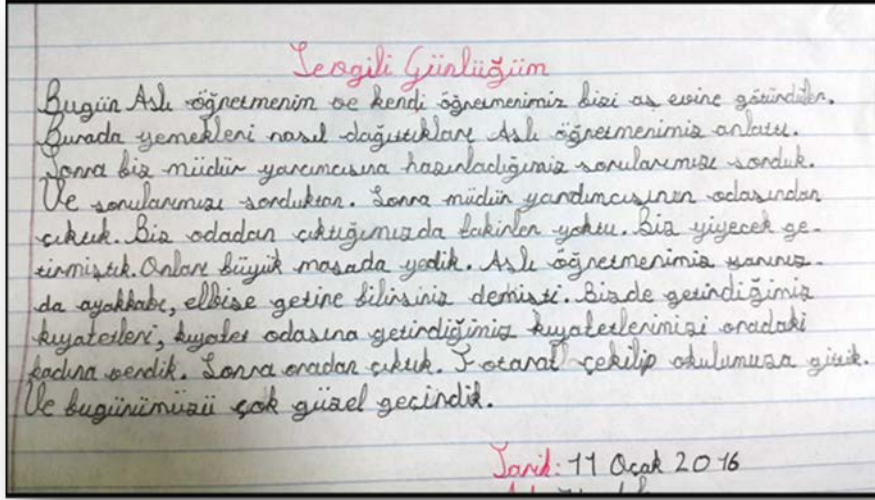 Sevgili Günlüğüm
Bugün Aslı öğretmenim ve kendi öğretmenimiz bizi aş evine götürdüler.
Burada yemekleri nasıl dağıttıkları Aslı öğretmenimiz anlattı.
Sonra biz müdür yarımcısına hazırladığımız sorularımızı sorduk.
Ve sorularımızı sorduktan. Sonra müdür yardımcısının odasından
çıktık. Biz odadan çıktığımızda fakirler yoktu. Biz yiyecek ge-
tirmiştik. Onları büyük masada yedik. Aslı öğretmenimiz yanınız-
da ayakkabı, elbise getire bilirsiniz demişti. Bizde getirdiğimiz
kıyafetleri, kıyafet odasına getirdiğimiz kıyafetlerimizi oradaki
kadına verdik. Sonra oradan çıktık. Fotaraf çekilip okulumuza gittik.
Ve bugünümüzü çok güzel geçirdik.
Tarih: 11 Ocak 2016